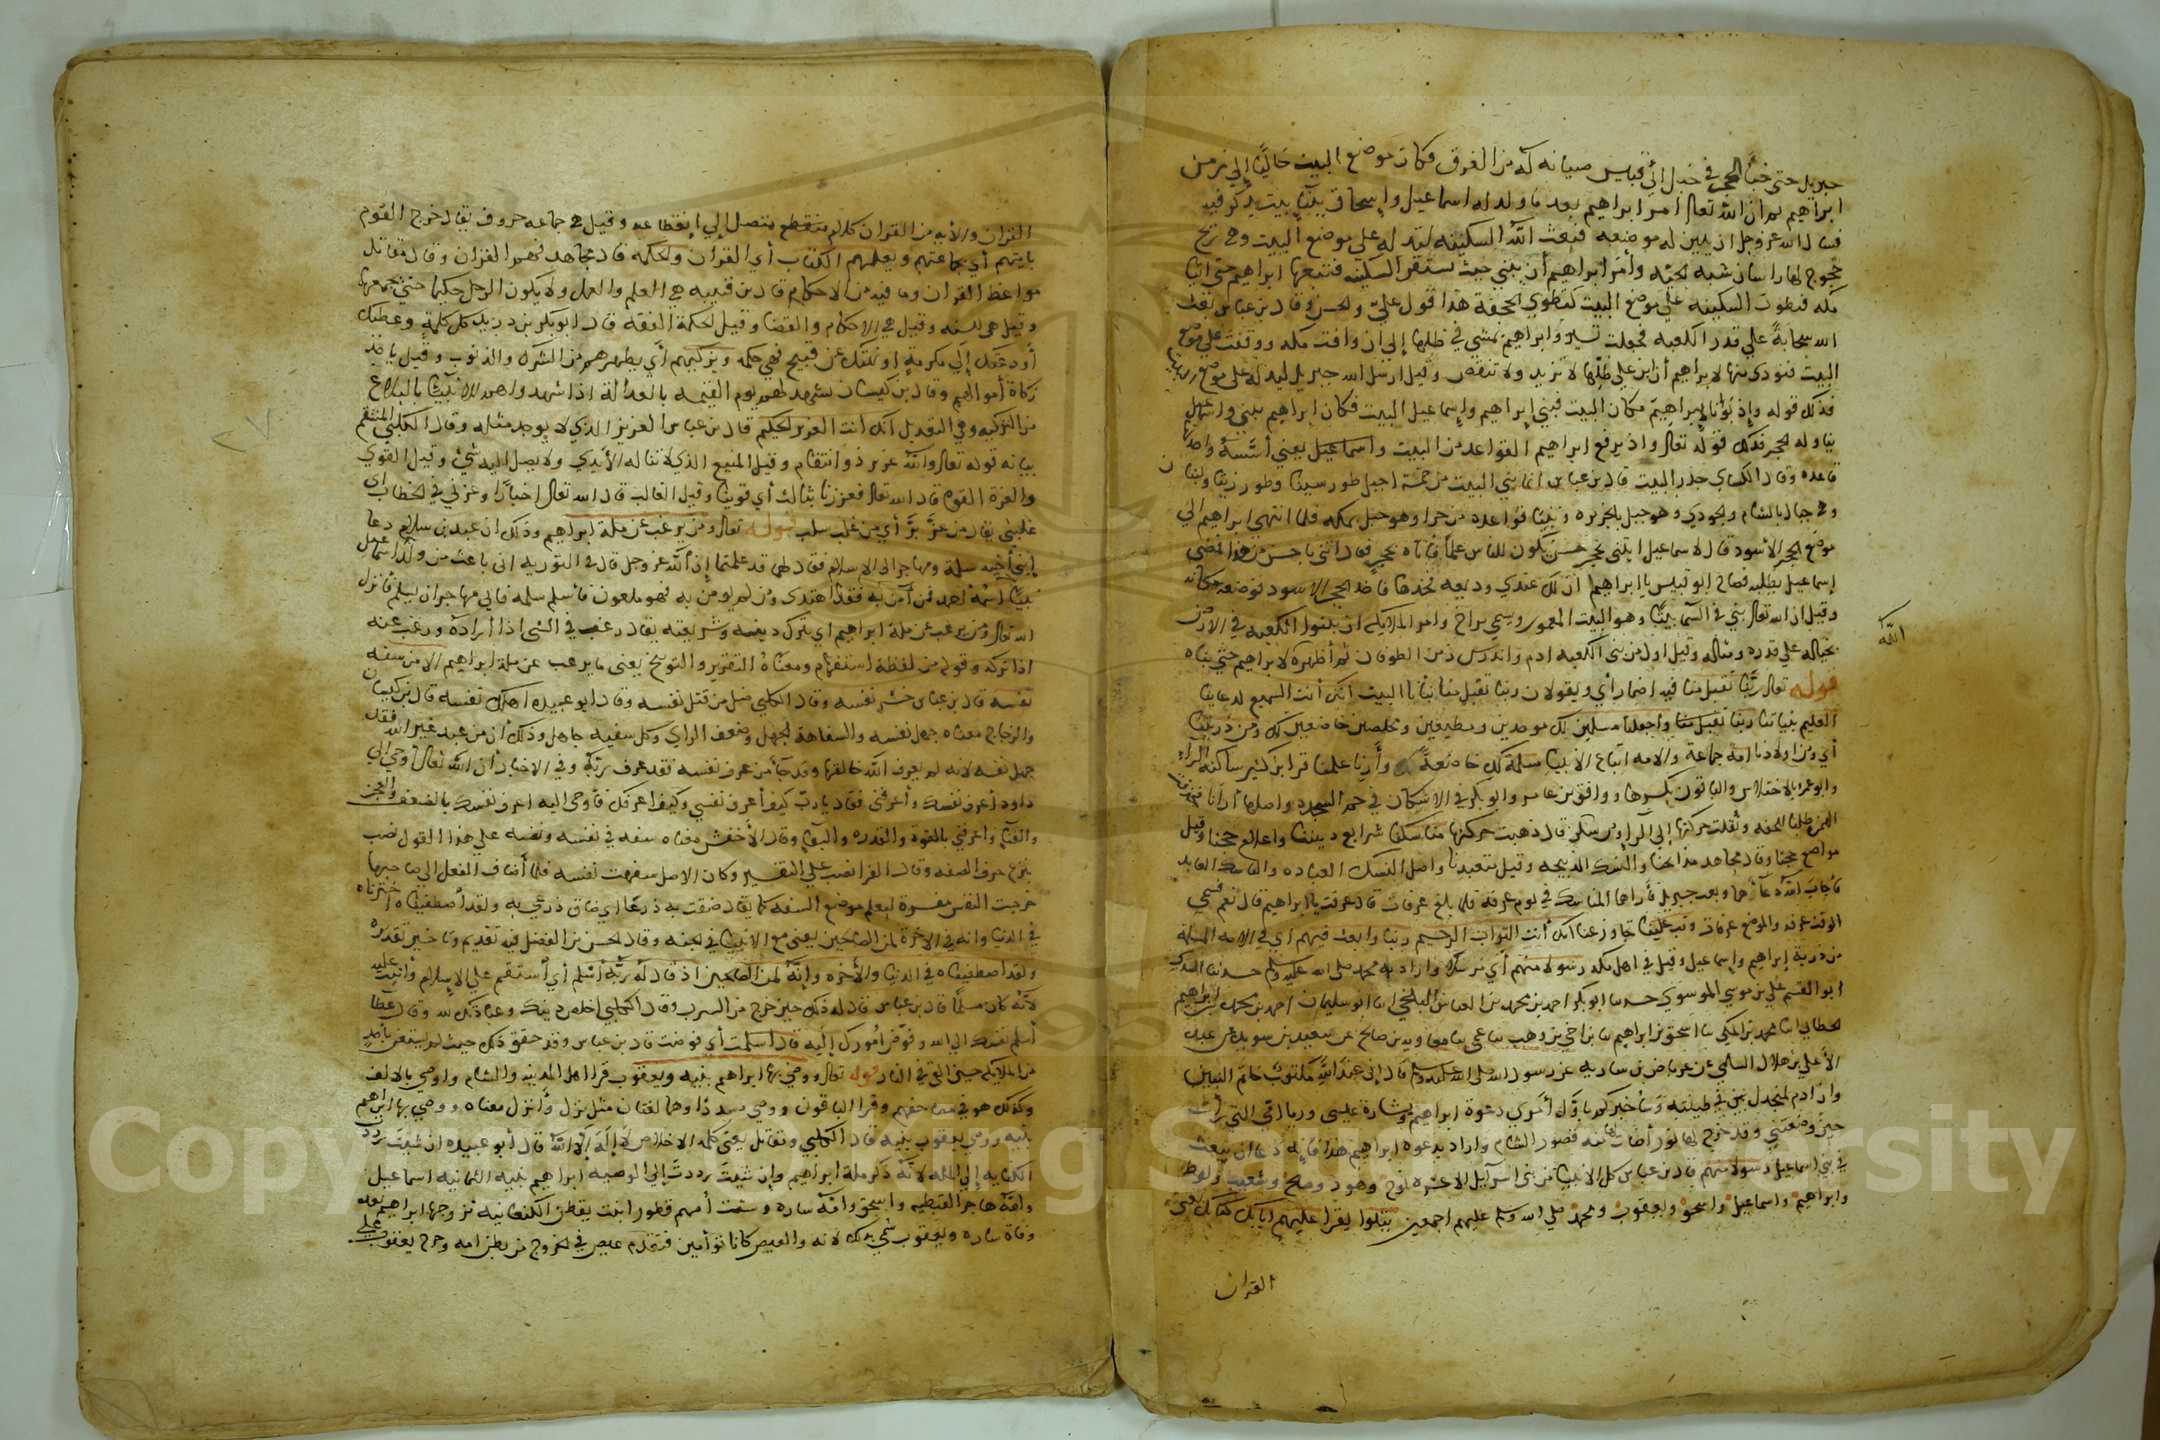 جبريل حتى خبأ الحجر في جبل أبي قبيس صيانة له من الغرق فكان موضع البيت خاليًا إلي زمن
ابراهيم ثم ان الله تعالى امر ابراهيم بعد ما ولد له اسماعيل وإسحاق ببناء بيت يذكر فيه
فسال الله عز وجل ان يبين له موضعه فبعث الله السكينه لتدله على موضع البيت وهي ريح
خجوج لها راسان شبه الحيه وأمر ابراهيم أن يبني حيث تستقر السكينه فتبعها ابراهيم حتى اتيا
مكه فتطوت السكينه علي موضع البيت كتطوي الحجفة هذا قول علي والحسن وقال بن عباس بعث
الله سحابة علي قدر الكعبه فجعلت تسير وابراهيم يمشي في ظلها إلى ان وافت مكه ووقفت علي موضع
البيت فنودي منها لابراهيم أن ابن علي ظلها لا تزيد ولا تنقص وقيل ارسل الله جبريل ليدله على موضع البيت
فذلك قوله وإذ بوأنا لإبراهيم مكان البيت فبني إبراهيم وإسماعيل البيت فكان ابراهيم يبني واسماعيل
يناوله الحجر فذلك قوله تعالى واذ يرفع ابراهيم القواعد من البيت واسماعيل يعني أسسه واحدتها
قاعده وقال الكسائي جدر البيت قال بن عباس انما بني البيت من خمسة اجبل طور سينا وطور زيتا ولبنان
وهي جبال بالشام والجودي وهو جبل بالجزيره وبنيا قواعده من حرا وهو جبل بمكه فلما انتهى ابراهيم الي
موضع الحجر الأسود قال لاسماعيل ايتني بحجر حسن يكون للناس علما فاتاه بحجر فقال ائتني باحسن من هذا فمضى
إسماعيل يطلبه فصاح ابو قبيس يا ابراهيم ان لك عندي وديعه فخذها فاخذ الحجر الاسود فوضعه مكانه
وقيل ان الله تعالى بني في السما بيتًا وهو البيت المعمور ويسمي ضراح وامر الملايكه ان يبنوا الكعبه في الارض
الله
بحياله علي قدره ومثاله وقيل اول من بنى الكعبه ادم واندرس زمن الطوفان ثم أظهره الله لابراهيم حتى بناه
قوله تعالى ربنا تقبل منا فيه اضمار أي ويقولان ربنا تقبل منا بنانا البيت انك أنت السميع لدعاينا
العليم بنياتنا ربنا تقبل منا واجعلنا مسلمين لك موحدين ومطيعين ومخلصين خاضعين لك ومن ذريتنا
أي ومن اولادنا امة جماعة والامه اتباع الأنبيا مسلمة لك خاضعة لك وأرنا علمنا قرا ابن كثير ساكنة الراء
وابو عمرو بالاختلاس والباقون بكسرها ووافق بن عامر وابو بكر في الاسكان في حم السجدة واصلها أرانا فحذفت
الهمزه طلبا للخفه ونقلت حركتها إلى الرا ومن سكن قال ذهبت حركتها مناسكنا شرايع ديننا واعلام حجنا وقيل
مواضع حجنا وقال مجاهد مذابحنا والنسك الذبيحه وقيل متعبدنا واصل النسك العباده والناسك العابد
فأجاب الله دعاهما وبعث جبريل فأراهما المناسك في يوم عرفة فلما بلغ عرفات قال عرفت يا ابراهيم قال نعم فسمي
الوقت عرفه والموضع عرفات وتب علينا تجاوز عنا انك أنت التواب الرحيم ربنا وابعث فيهم أي في الامه المسلمة
من ذرية إبراهيم وإسماعيل وقيل في اهل مكه رسولا منهم أي مرسلا واراد به محمد صلى الله عليه وسلم حدثنا السدي
ابو القسم علي بن موسي الموسوي حدثنا ابو بكر احمد بن محمد بن العباس البلخي انا ابو سليمان احمد بن محمد بن ابراهيم
الخطابي انا محمد بن المكي نا اسحق بن ابراهيم نا بن اخي بن وهب نا عمي نا معاويه بن صالح عن سعيد بن سويد عن عبد
الأعلي بن هلال السلمي عن عرباض بن ساريه عن رسول الله صلى الله عليه وسلم قال إني عند الله مكتوب خاتم النبيين
وان ادم لمنجدل بين في طينته وسأخبركم باول أمري دعوة ابراهيم وبشارة عيسى ورؤيا امي التي رأت
حين وضعتني وقد خرج لها نور أضات لها منه قصور الشام واراد بدعوه ابراهيم هذا فانه دعا ان يبعث
في بني اسماعيل رسولا منهم قال بن عباس كل الانبيا من بني اسرائيل الا عشره نوح وهود وصالح وشعيب ولوط
وابراهيم واسماعيل واسحق ويعقوب ومحمد صلى الله وسلم عليهم اجمعين يتلوا يقرا عليهم اياتك كتابك يعني
القران
القران والأية من القران كلام منقطع متصل إلي انقطاعه وقيل هي جماعه حروف يقال خرج القوم
بايتهم أي بجماعتهم ويعلمهم الكتاب أي القران والحكمه قال مجاهد فهم القران وقال مقاتل
مواعظ القران وما فيه من الاحكام قال بن قتيبه هي العلم والعمل ولا يكون الرجل حكيما حتى يجمعها
وقيل هي السنه وقيل هي الاحكام والقضا وقيل الحكمة الفقه قال ابو بكر بن دريد كل كلمة وعظتك
أو دعتك إلى مكرمة او نهتك عن قبيح فهي حكمه ويزكيهم أي يطهرهم من الشرك والذنوب وقيل ياخذ
زكاة أموالهم وقال بن كيسان يشهد لهم يوم القيمه بالعدالة اذا شهدوا هم للانبيا بالبلاغ
من التزكيه وهي التعديل انك انت العزيز الحكيم قال بن عباس العزيز الذي لا يوجد مثله وقال الكلبي المنتقم
بيانه قوله تعالى والله عزيز ذو انتقام وقيل المنيع الذي لا تناله الأيدي ولا يصل اليه شئ وقيل القوي
والعزة القوه قال الله تعالى فعززنا بثالث أي قوينا وقيل الغالب قال الله تعالى اخبارًا وعزني في الخطاب اي
غلبني يقال من عز بز أي من غلب سلب قوله تعالى ومن يرغب عن ملة ابراهيم وذلك ان عبد بن سلام دعا
إبني أخيه سلمة ومهاجر الي الاسلام فقال لهما قد علمتما إن الله عز وجل قال في التوريه اني باعث من ولد اسماعيل
نبيًا اسمه أحمد فمن آمن به فقد اهتدى ومن لم يومن به فهو ملعون فأسلم سلمه فابي مهاجر ان يسلم فانزل
الله تعالى ومن يرغب عن ملة ابراهيم اي يترك دينه وشريعته يقال رغب في الشي اذا أراده ورغب عنه
اذا تركه وقوله من لفظة استفهام ومعناه التقرير والتوبيخ يعني ما يرغب عن ملة ابراهيم الا من سفه
نفسه قال بن عباس خسر نفسه وقال الكلبي ضل من قتل نفسه وقال ابو عبيده اهلك نفسه قال بن كيسان
والزجاج معناه جهل نفسه والسفاهة الجهل وضعف الراي وكل سفيه جاهل وذلك أن من عبد غير الله فقد
جهل نفسه لانه لم يعرف الله خالقها وقد جا من عرف نفسه فقد عرف ربه وفي الاخبار أن الله تعالى أوحي إلي
داود أعرف نفسك وأعرفني فقال يا رب كيف أعرف نفسي وكيف اعرفك فأوحى اليه اعرف نفسك بالضعف والعجز
والفنا واعرفني بالقوة والقدره والبقا وقال الأخفش معناه سفه في نفسه ونفسه علي هذا القول نصب
بنزع حرف الصفه وقال الفرا نصب علي التفسير وكان الاصل سفهت نفسه فلما أضاف الفعل الى صاحبها
خرجت النفس مفسرة ليعلم موضع السفه كما يقال ضقت به ذرعا اي ضاق ذرعي به ولقد اصطفيناه اخترناه
في الدنيا وانه في الاخرة لمن الصالحين يعني مع الانبيا في الجنه وقال الحسن بن الفضل فيه تقديم وتاخير تقديره
ولقد اصطفيناه في الدنيا والأخره وإنه لمن الصالحين اذ قال له ربه أسلم أي استقم علي الإسلام واثبت عليه
لأنه كان مسلمًا قال بن عباس قال له ذلك حين خرج من السرب وقال الكلبي اخلص دينك وعبادتك لله وقال عطا
أسلم نفسك الي الله وفوض أمورك إليه قال أسلمت أي فوضت قال بن عباس وقد حقق ذلك حيث لم يستعن بأحد
من الملايكه حين القي في النار قوله تعالى ووصي بها ابراهيم بنيه ويعقوب قرا اهل المدينه والشام واوصي بالالف
وكذلك هو في مصاحفهم وقرا الباقون ووصي مشددًا وهما لغتان مثل نزل وأنزل معناه ووصي بها ابراهيم
بنيه ووصي يعقوب بنيه قال الكلبي ومقاتل يعني كلمه الاخلاص لا إله إلا الله قال أبو عبيده ان شيت رددت
الكنايه إلي الملة لانه ذكر ملة ابراهيم وإن شيت رددت إلي الوصيه ابراهيم بنيه الثمانيه اسماعيل
وامه هاجر القبطيه واسحق وامه ساره وستة أمهم قطورا بنت يقطن الكنعانيه تزوجها ابراهيم بعد
وفاة ساره ويعقوب سمي بذلك لانه والعيص كانا توأمين فتقدم عيص في الخروج من بطن امه وخرج يعقوب علي